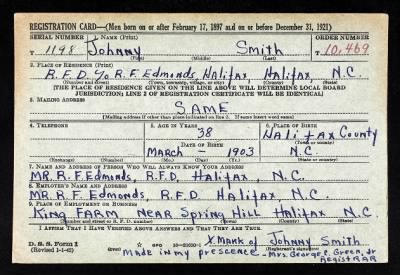 REGISTRATION CARD—(Men born on or after February 17, 1897 and on or before December 31, 1921)
SERIAL NUMBER 1. NAME (Print) ORDER NUMBER
T 1198 Johnny Smith T 10,469
(First) (Middle) (Last)
2. PLACE OF RESIDENCE (Print)
R.F.D. % R.F. Edmonds Halifax, Halifax, N.C.
(Number and street) (Town, township, village, or city) (County) (State)
[THE PLACE OF RESIDENCE GIVEN ON THE LINE ABOVE WILL DETERMINE LOCAL BOARD
JURISDICTION; LINE 2 OF REGISTRATION CERTIFICATE WILL BE IDENTICAL]
3. MAILING ADDRESS
SAME
[Mailing address if other than place indicated on line 2. If same insert word same]
4. TELEPHONE 5. AGE IN YEARS 6. PLACE OF BIRTH
38 Halifax County
DATE OF BIRTH (Town or county)
March – 1903 N.C.
(Exchange) (Number) (Mo.) (Day) (Yr.) (State or country)
7. NAME AND ADDRESS OF PERSON WHO WILL ALWAYS KNOW YOUR ADDRESS
MR. R.F. Edmonds, R.F.D, Halifax, N.C.
8. EMPLOYER'S NAME AND ADDRESS
MR. R.F. Edmonds, R.F.D Halifax, N.C.
9. PLACE OF EMPLOYMENT OR BUSINESS
King FARM Near Spring Hill Halifax N.C.
(Number and street or R. F. D. number) (Town) (County) (State)
I AFFIRM THAT I HAVE VERIFIED ABOVE ANSWERS AND THAT THEY ARE TRUE.
D. S. S. Form 1 GPO X Mark of Johnny Smith
(Revised 1-1-42) (over) (Registrant's signature)
made in my presence – Mrs. George C. Green, Jr
Registrar